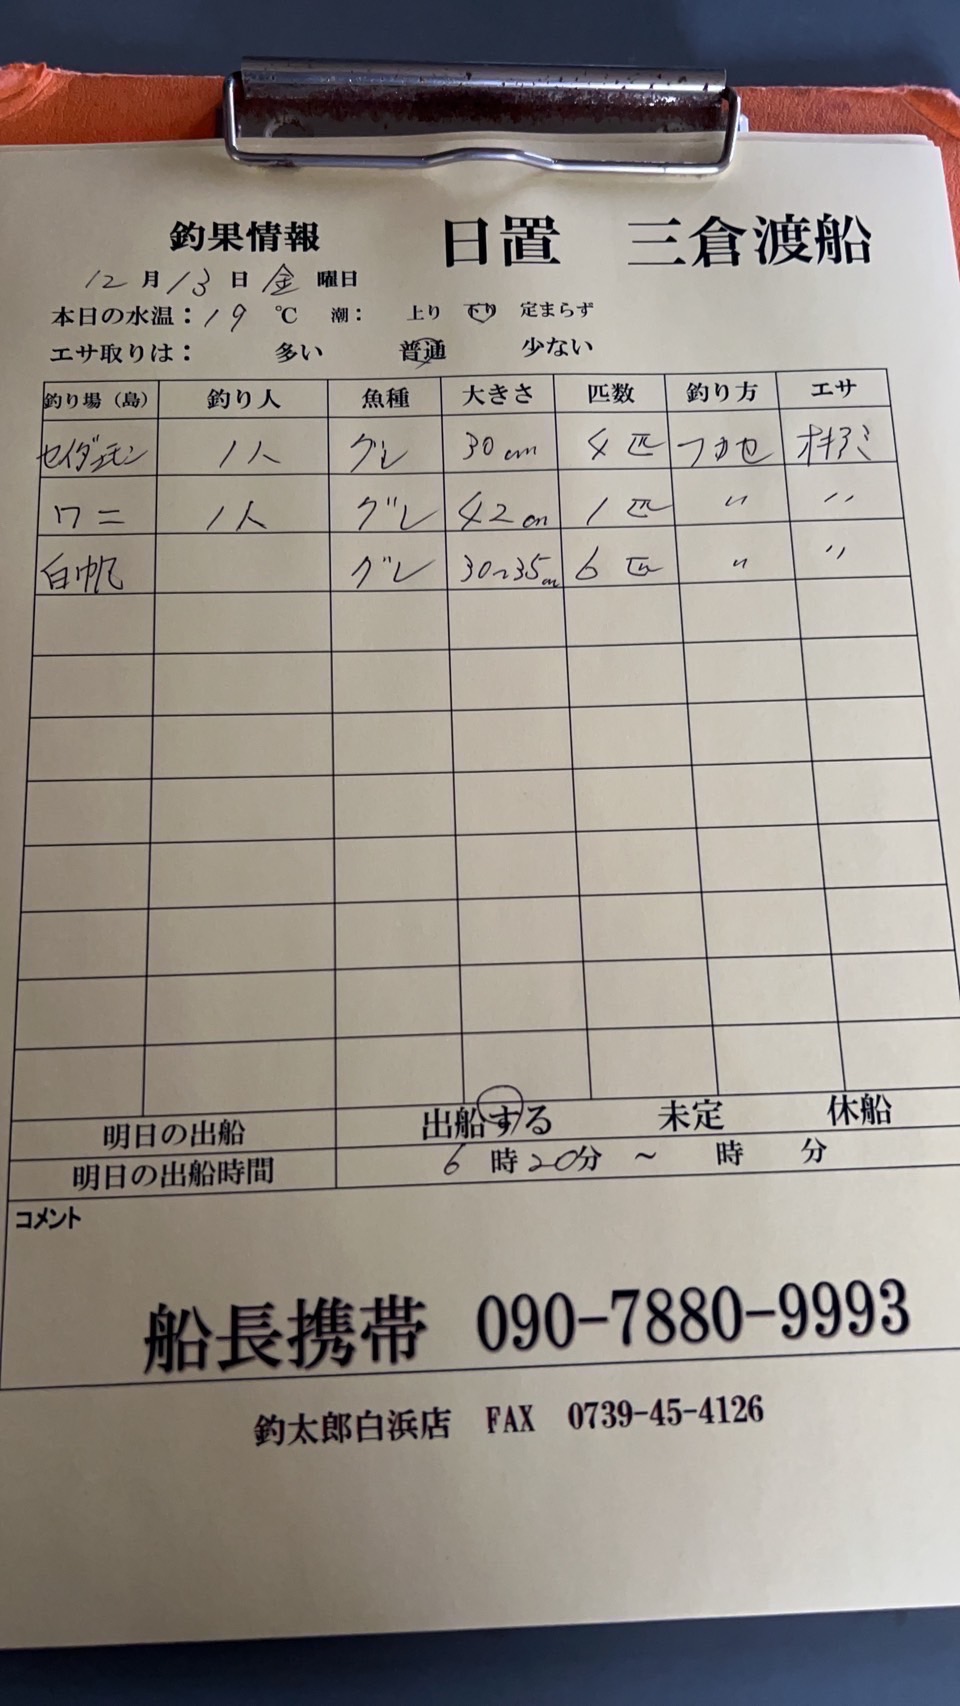 釣果情報 日置 三倉渡船
12月13日 金 曜日
本日の水温：19 ℃ 潮： 上り 下り 定まらず
エサ取りは： 多い 普通 少ない
釣り場（島） 釣り人 魚種 大きさ 匹数 釣り方 エサ
セイダエモン 1人 グレ 30cm 4匹 フカセ オキアミ
ワニ 1人 グレ 42cm 1匹 〃 〃
白帆 グレ 30~35cm 6匹 〃 〃
明日の出船 出船する 未定 休船
明日の出船時間 6時20分 ～ 時 分
コメント
船長携帯 090-7880-9993
釣太郎白浜店 FAX 0739-45-4126